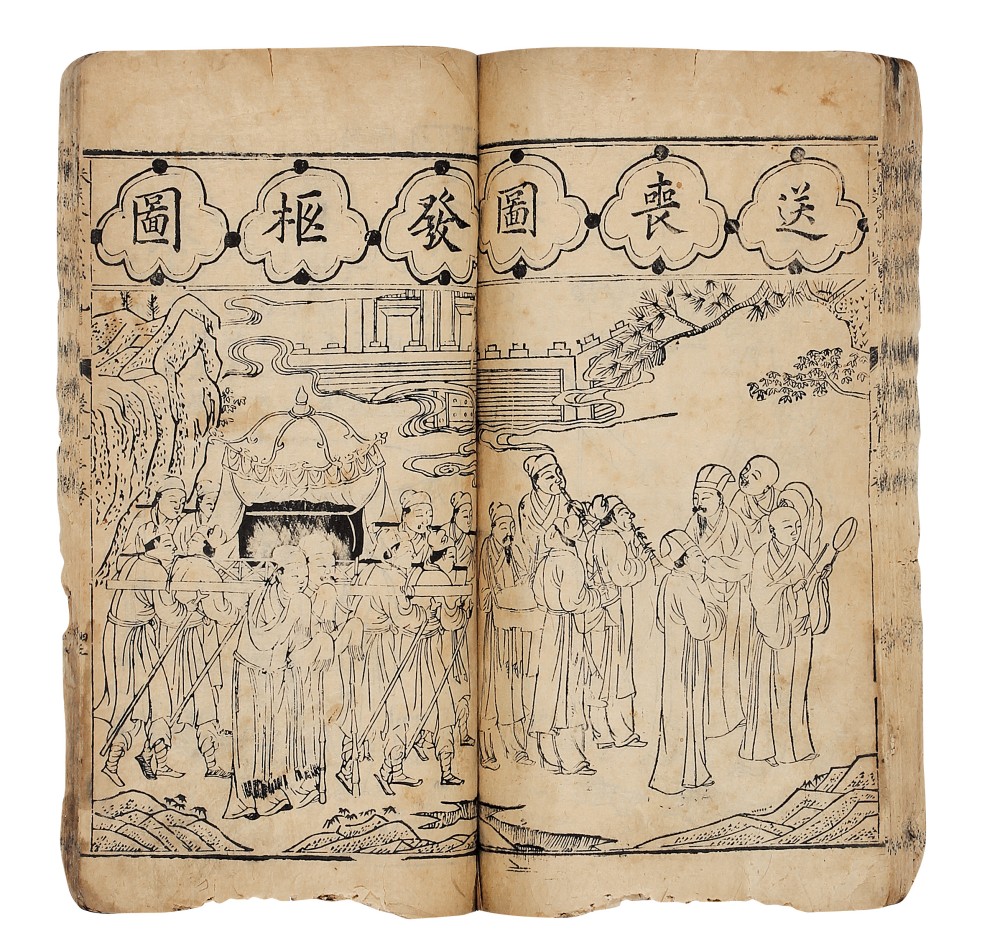 送喪圖
發柩圖